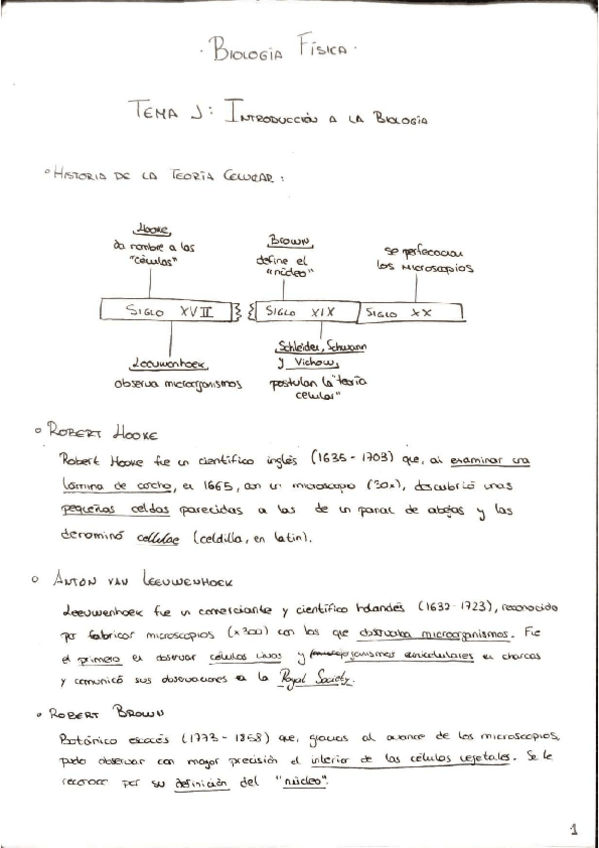 · BIOLOGÍA FÍSICA ·
TEMA 1: INTRODUCCIÓN A LA BIOLOGÍA
° HISTORIA DE LA TEORÍA CELULAR:
Hooke,
da nombre a las
"células"
Brown,
define el
"núcleo"
se perfeccionan
los microscopios
SIGLO XVII
SIGLO XIX
SIGLO XX
Leeuwenhoek
observa microorganismos
Schleider, Schwann
y Vichow,
postulan la "teoría
celular"
° ROBERT HOOKE
Robert Hooke fue un científico inglés (1635 - 1703) que, al examinar una
lámina de corcho, en 1665, con un microscopio (30x), descubrió unas
pequeñas celdas parecidas a las de un panal de abejas y las
denominó cellulae (celdilla, en latín).
° ANTON VAN LEEUWENHOEK
Leeuwenhoek fue un comerciante y científico holandés (1632 - 1723), reconocido
por fabricar microscopios (x300) con los que observaba microorganismos. Fue
el primero en observar células vivas y organismos unicelulares en charcas
y comunicó sus observaciones a la Royal Society.
° ROBERT BROWN
Botánico escocés (1773 - 1858) que, gracias al avance de los microscopios,
pudo observar con mayor precisión el interior de las células vegetales. Se le
reconoce por su definición del "núcleo".
1